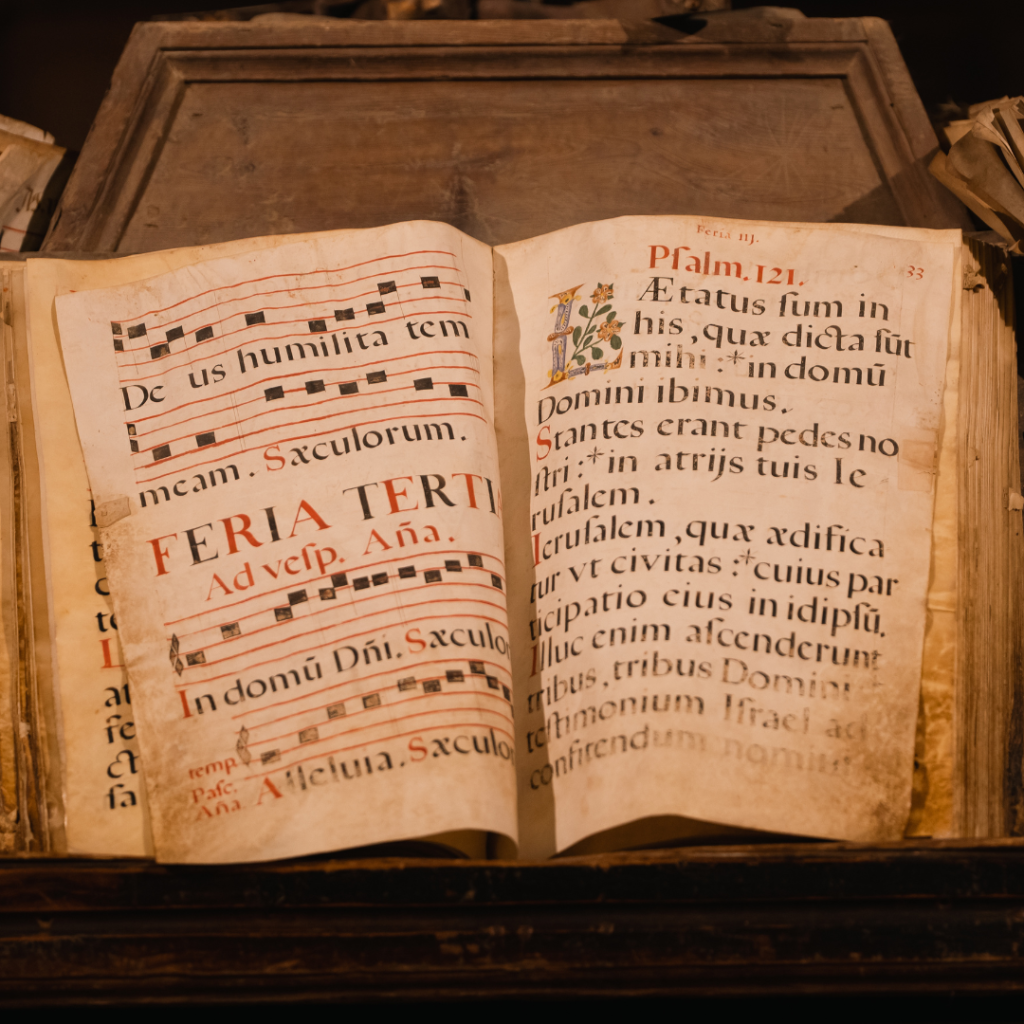 De us humilita tem
meam. Sæculorum.
FERIA TERTI
Ad vesp. Aña.
In domū Dñi. Sæculo
temp.
Pasc.
Aña. Alleluia. Sæculo
Feria IIJ.
Psalm. 121. 33
LÆtatus ſum in
his, quæ dicta ſūt
mihi :* in domū
Domini ibimus.
Stantes erant pedes no
ſtri :* in atrijs tuis Ie
ruſalem.
Ieruſalem, quæ ædifica
tur vt civitas :* cuius par
ticipatio eius in idipſū.
Illuc enim aſcenderunt
tribus, tribus Domini
teſtimonium Iſrael ad
confitendum nomini